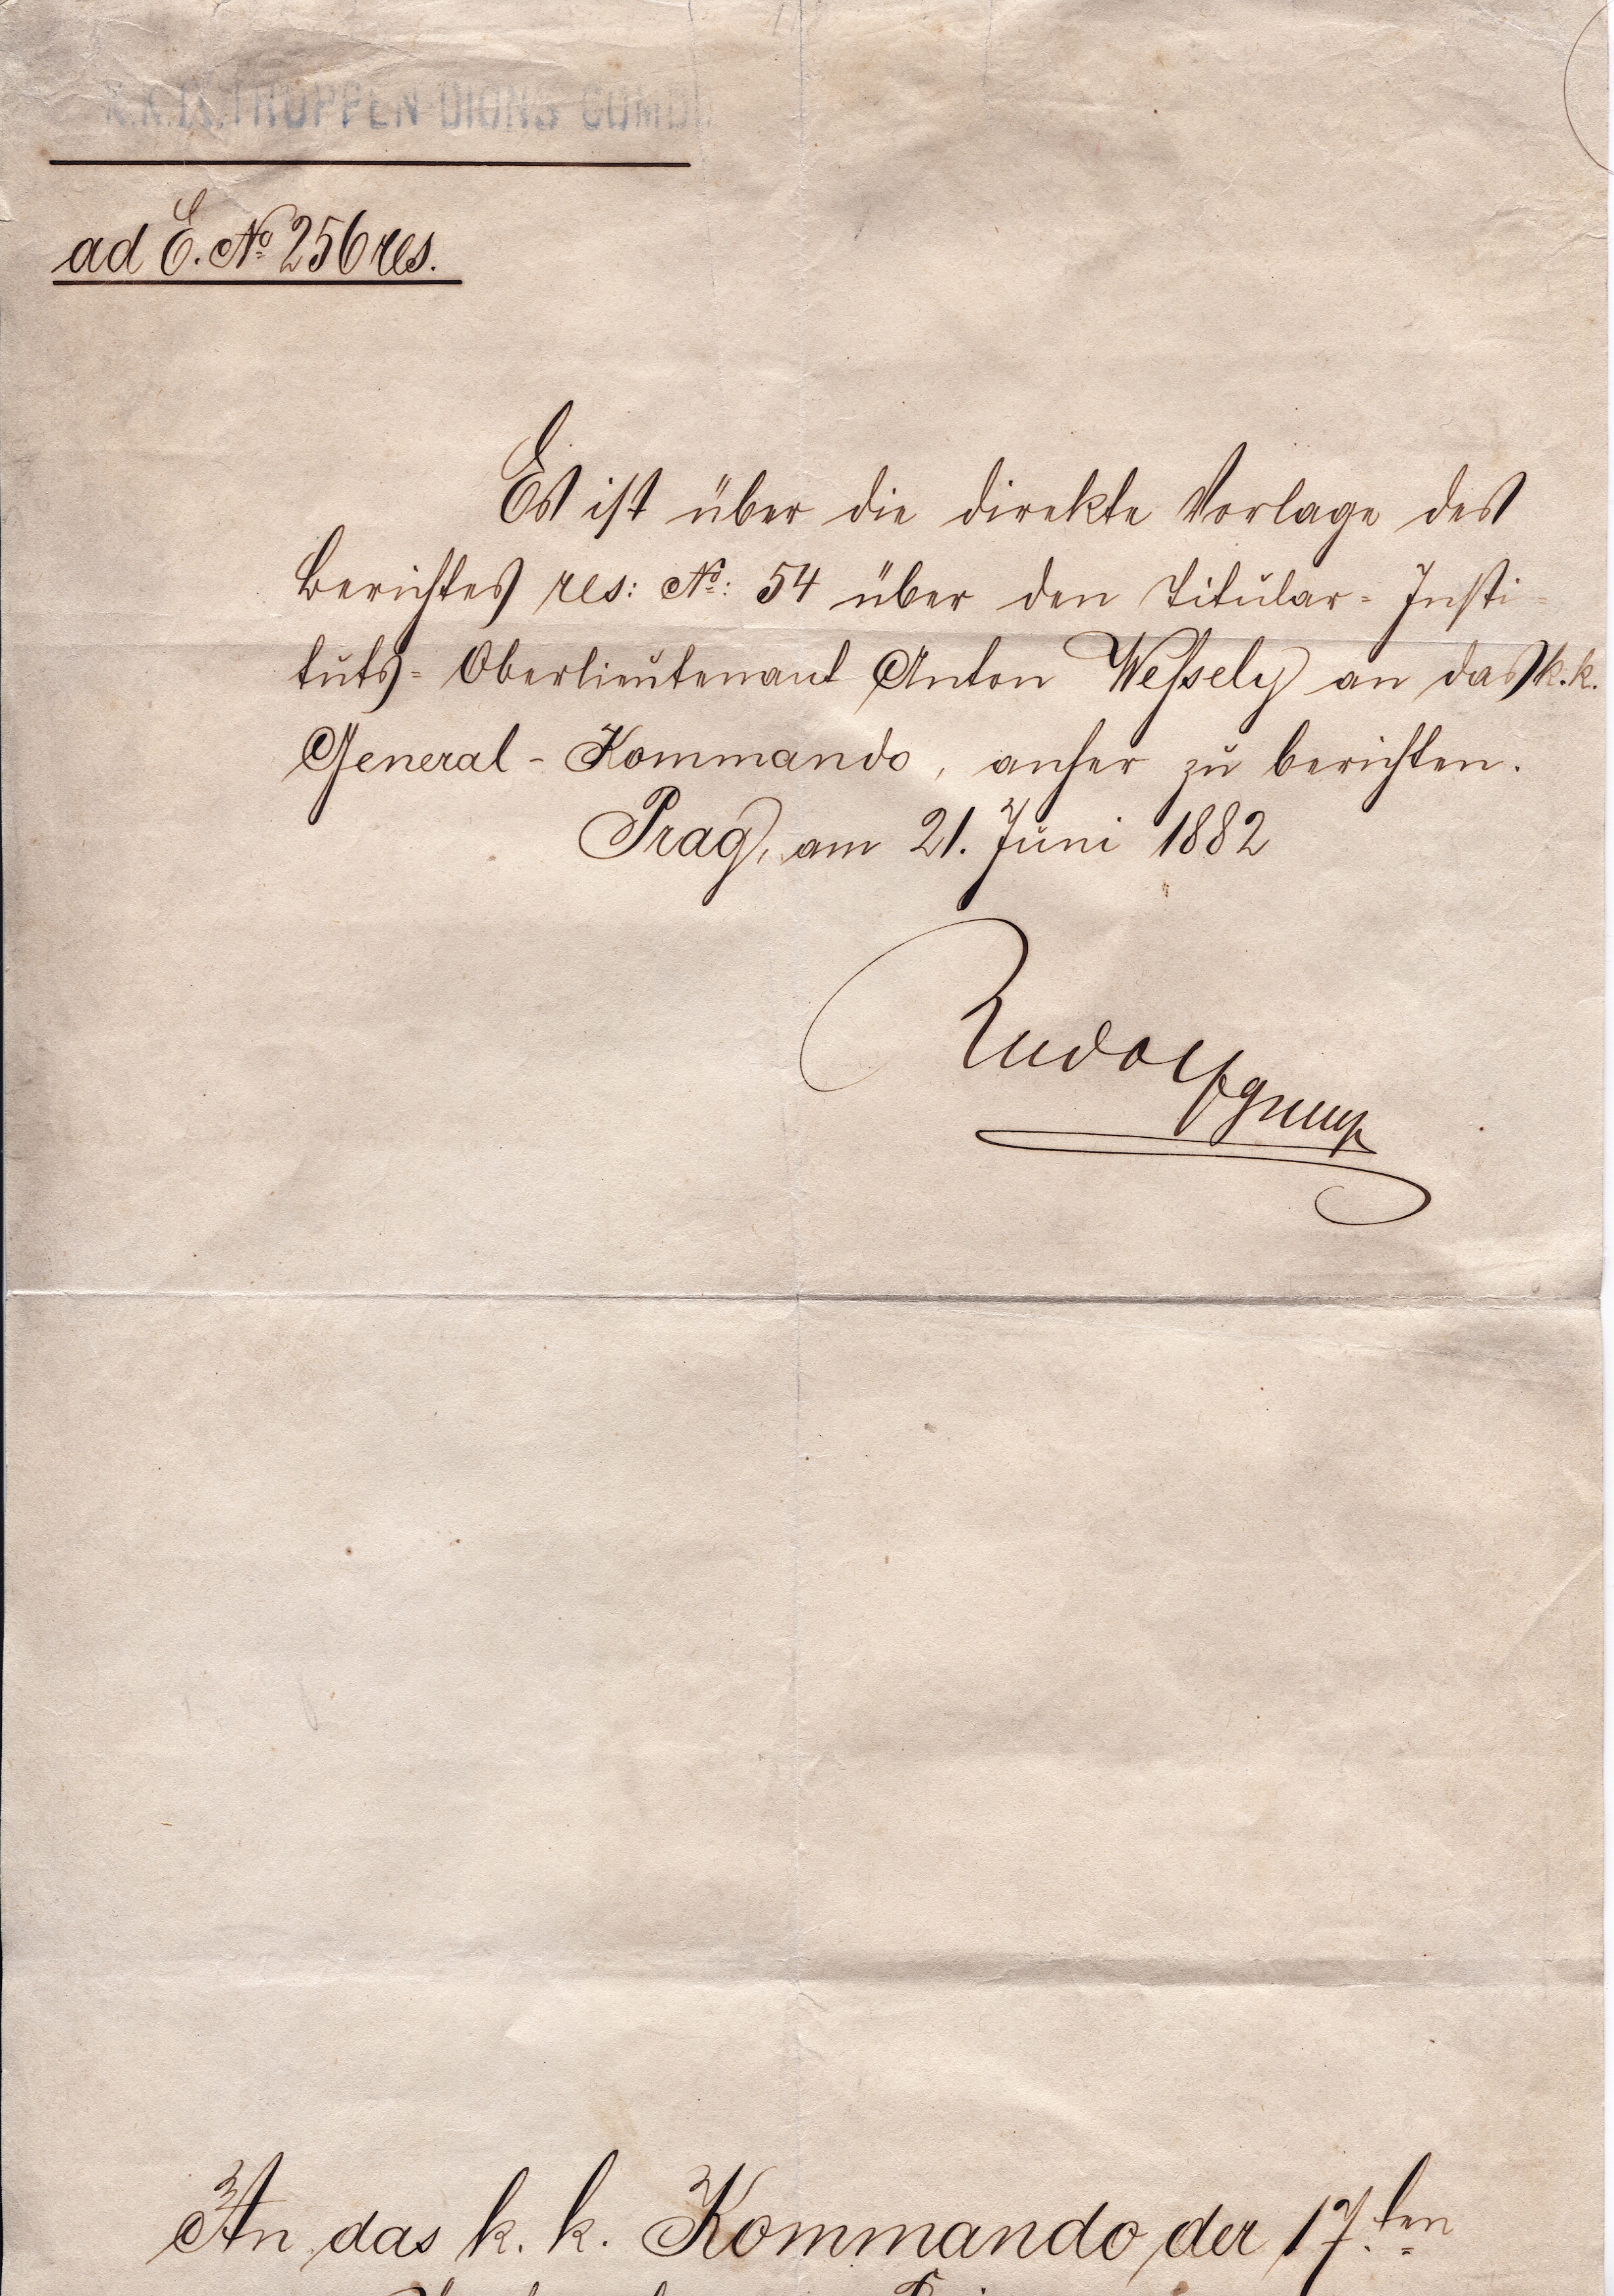 K.K. IX. TRUPPEN-DIONS COMDO
ad E. No 256 res.
Es ist über die direkte Vorlage des
Berichtes res: No: 54 über den Titular- Insti-
tuts- Oberlieutenant Anton Weſsely an das k. k.
General - Kommando, anher zu berichten.
Prag, am 21. Juni 1882
Rudolf
An das k. k. Kommando der 17.ten